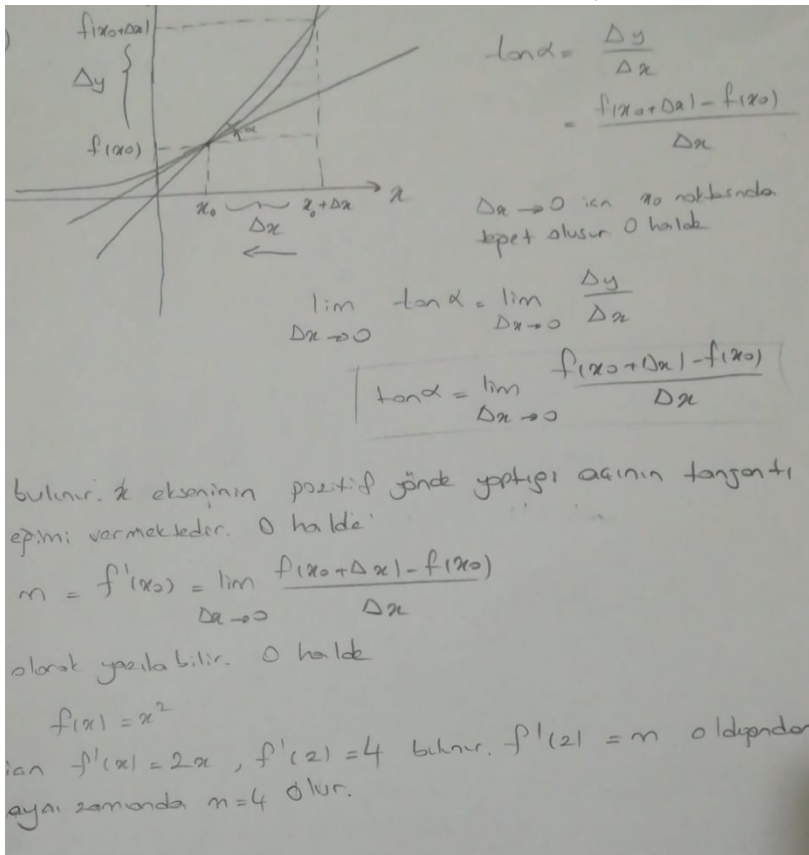 )
f(x₀+Δx)
Δy
f(x₀)
α
x₀
x₀+Δx
x
Δx
tanα = Δy/Δx
= (f(x₀+Δx) - f(x₀))/Δx
Δx→0 icn x₀ noktasında
teğet oluşur O halde
lim Δx→0 tanα = lim Δx→0 Δy/Δx
tanα = lim Δx→0 (f(x₀+Δx) - f(x₀))/Δx
bulunur. x ekseninin pozitif yönde yaptığı açının tanjantı
eğimi vermektedir. O halde
m = f'(x₀) = lim Δx→0 (f(x₀+Δx) - f(x₀))/Δx
olarak yazılabilir. O halde
f(x) = x²
icn f'(x) = 2x, f'(2) = 4 bulunur. f'(2) = m olduğundan
aynı zamanda m=4 olur.